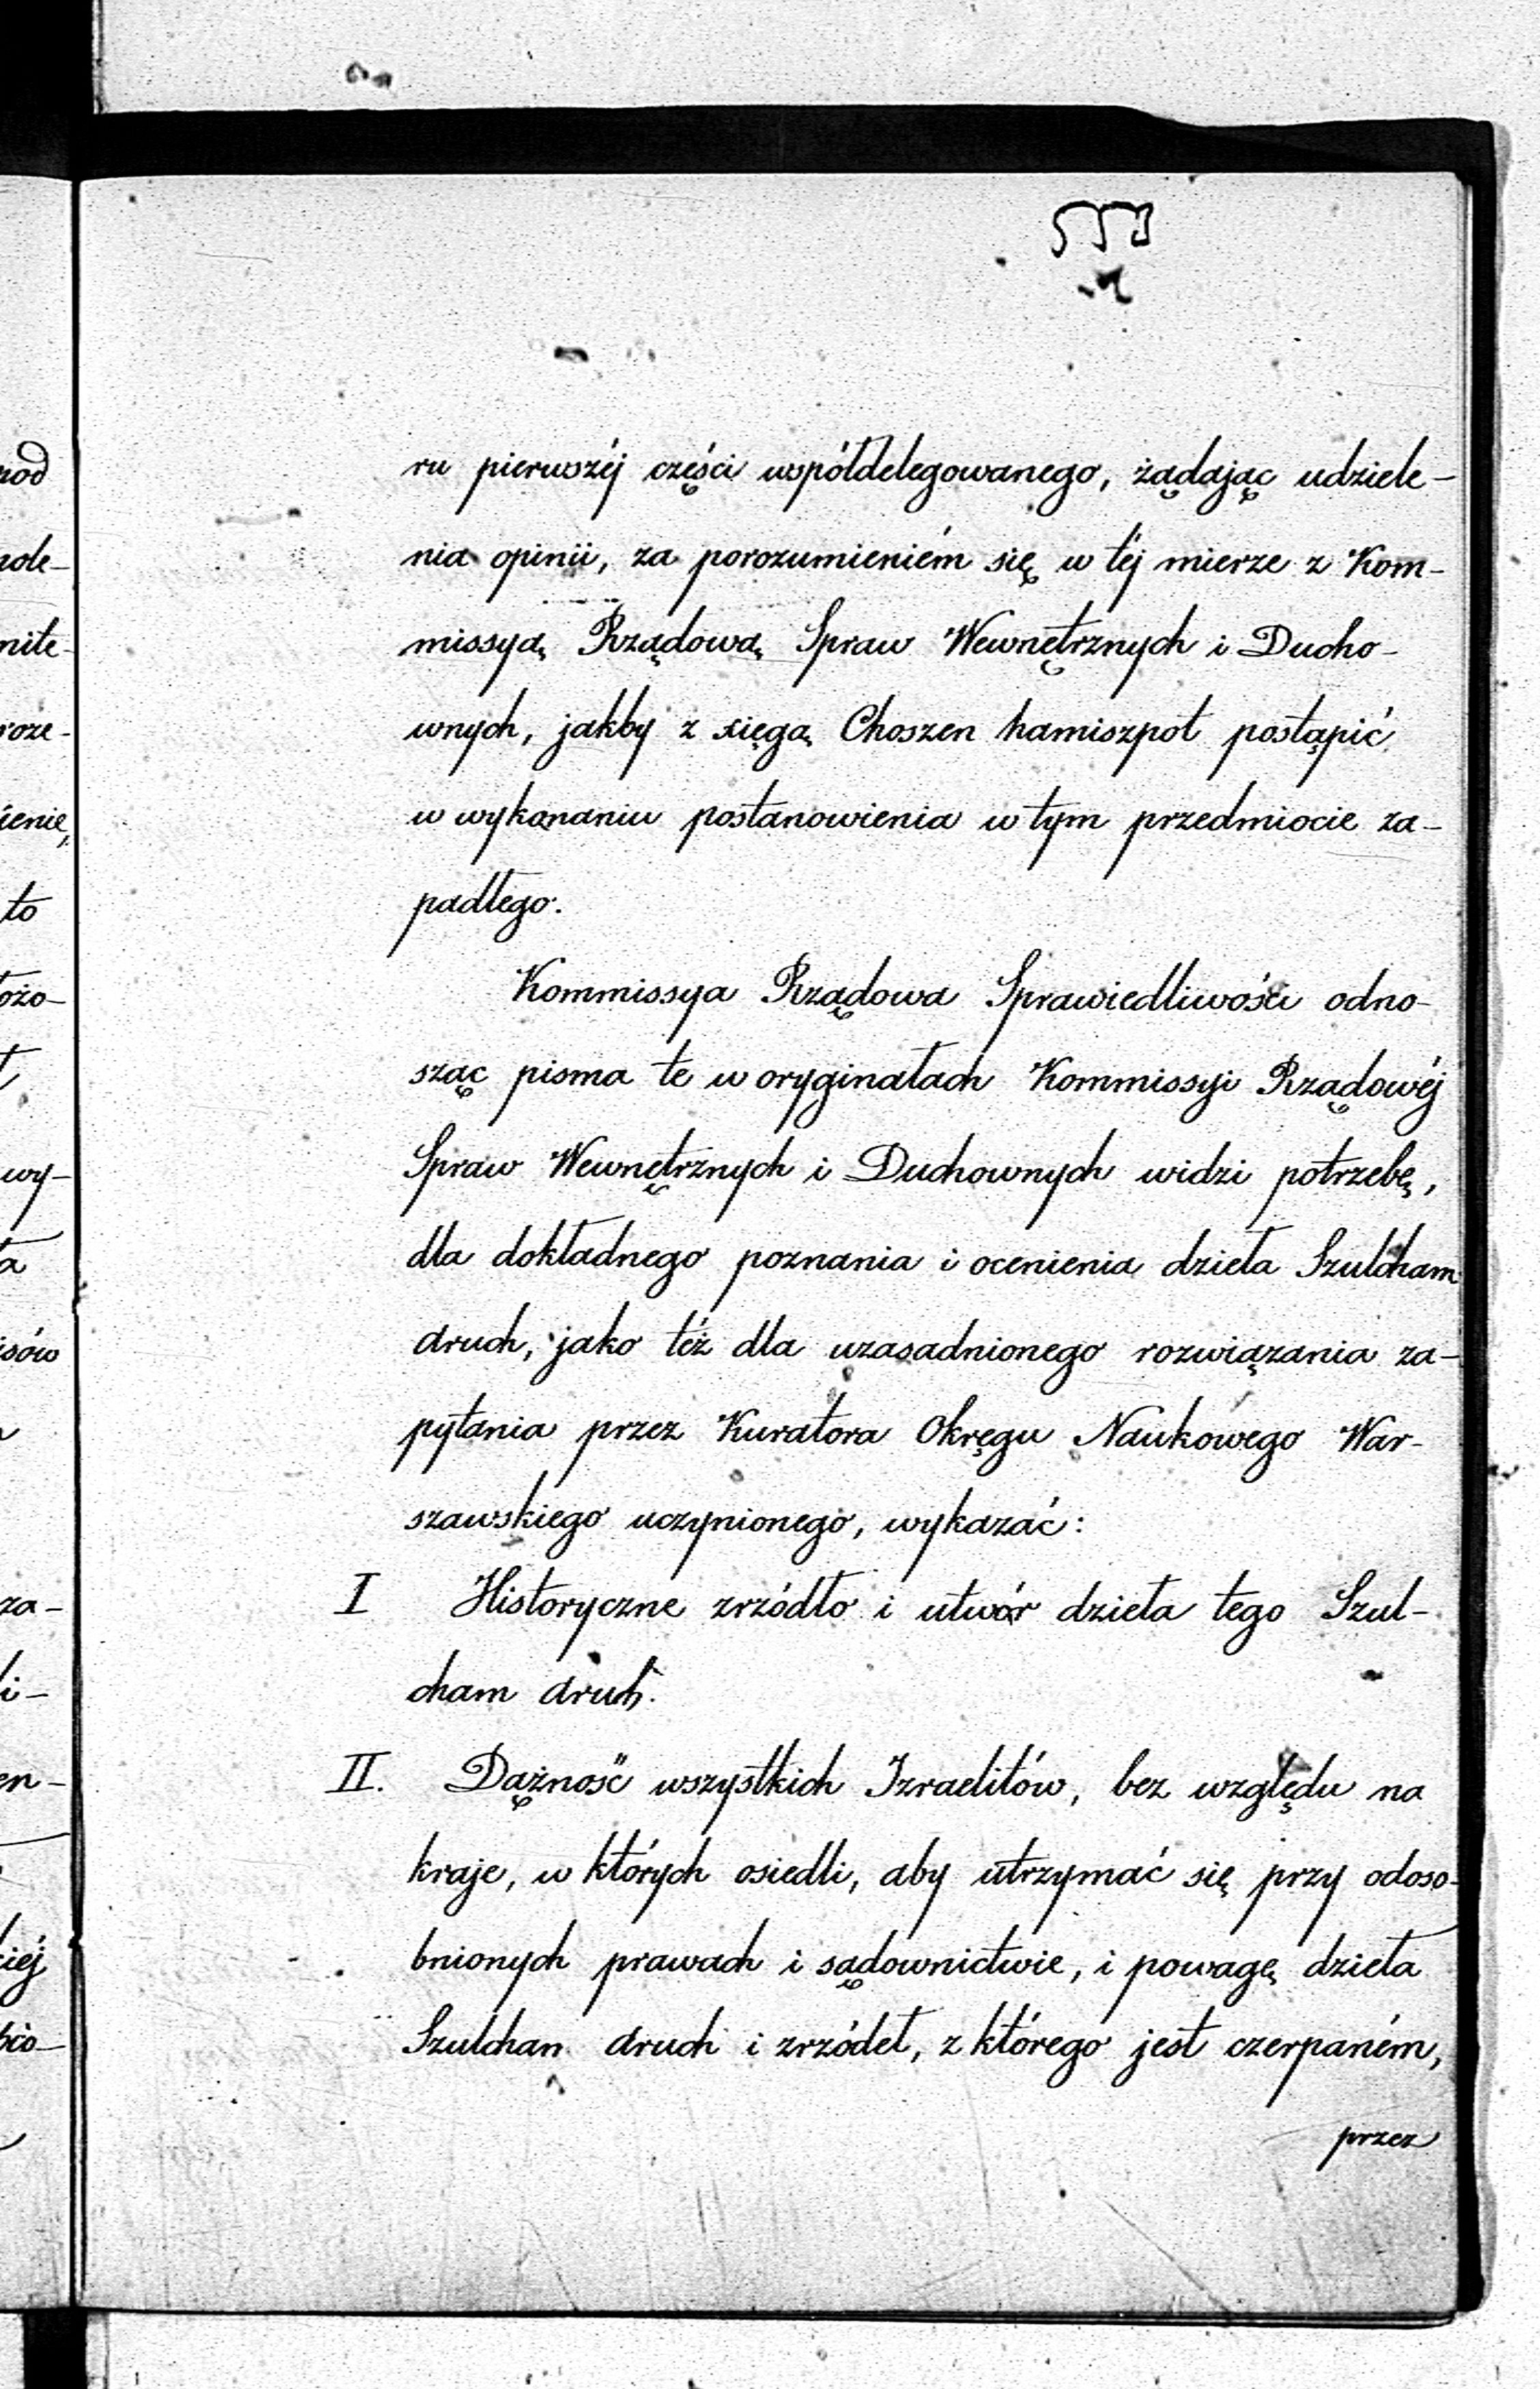 ru pierwszéj części współdelegowanego, żądając udziele-
nia opinii, za porozumieniém się w téj mierze z Kom-
missyą Rządową Spraw Wewnętrznych i Ducho-
wnych, jakby z xięgą Choszen hamiszpot postąpić
w wykonaniu postanowienia w tym przedmiocie za-
padłego.
Kommissya Rządowa Sprawiedliwości odno-
sząc pisma te w oryginałach Kommissyi Rządowéj
Spraw Wewnętrznych i Duchownych widzi potrzebę,
dla dokładnego poznania i ocenienia dzieła Szulcham
Aruch, jako też dla uzasadnionego rozwiązania za-
pytania przez Kuratora Okręgu Naukowego War-
szawskiego uczynionego, wykazać:
I Historyczne zrzódło i utwór dzieła tego Szul-
cham Aruh.
II. Dążność wszystkich Izraelitów, bez względu na
kraje, w których osiedli, aby utrzymać się przy odoso-
bnionych prawach i sądownictwie, i powagę dzieła
Szulchan Aruch i zrzódeł, z którego jest czerpaném,
przez